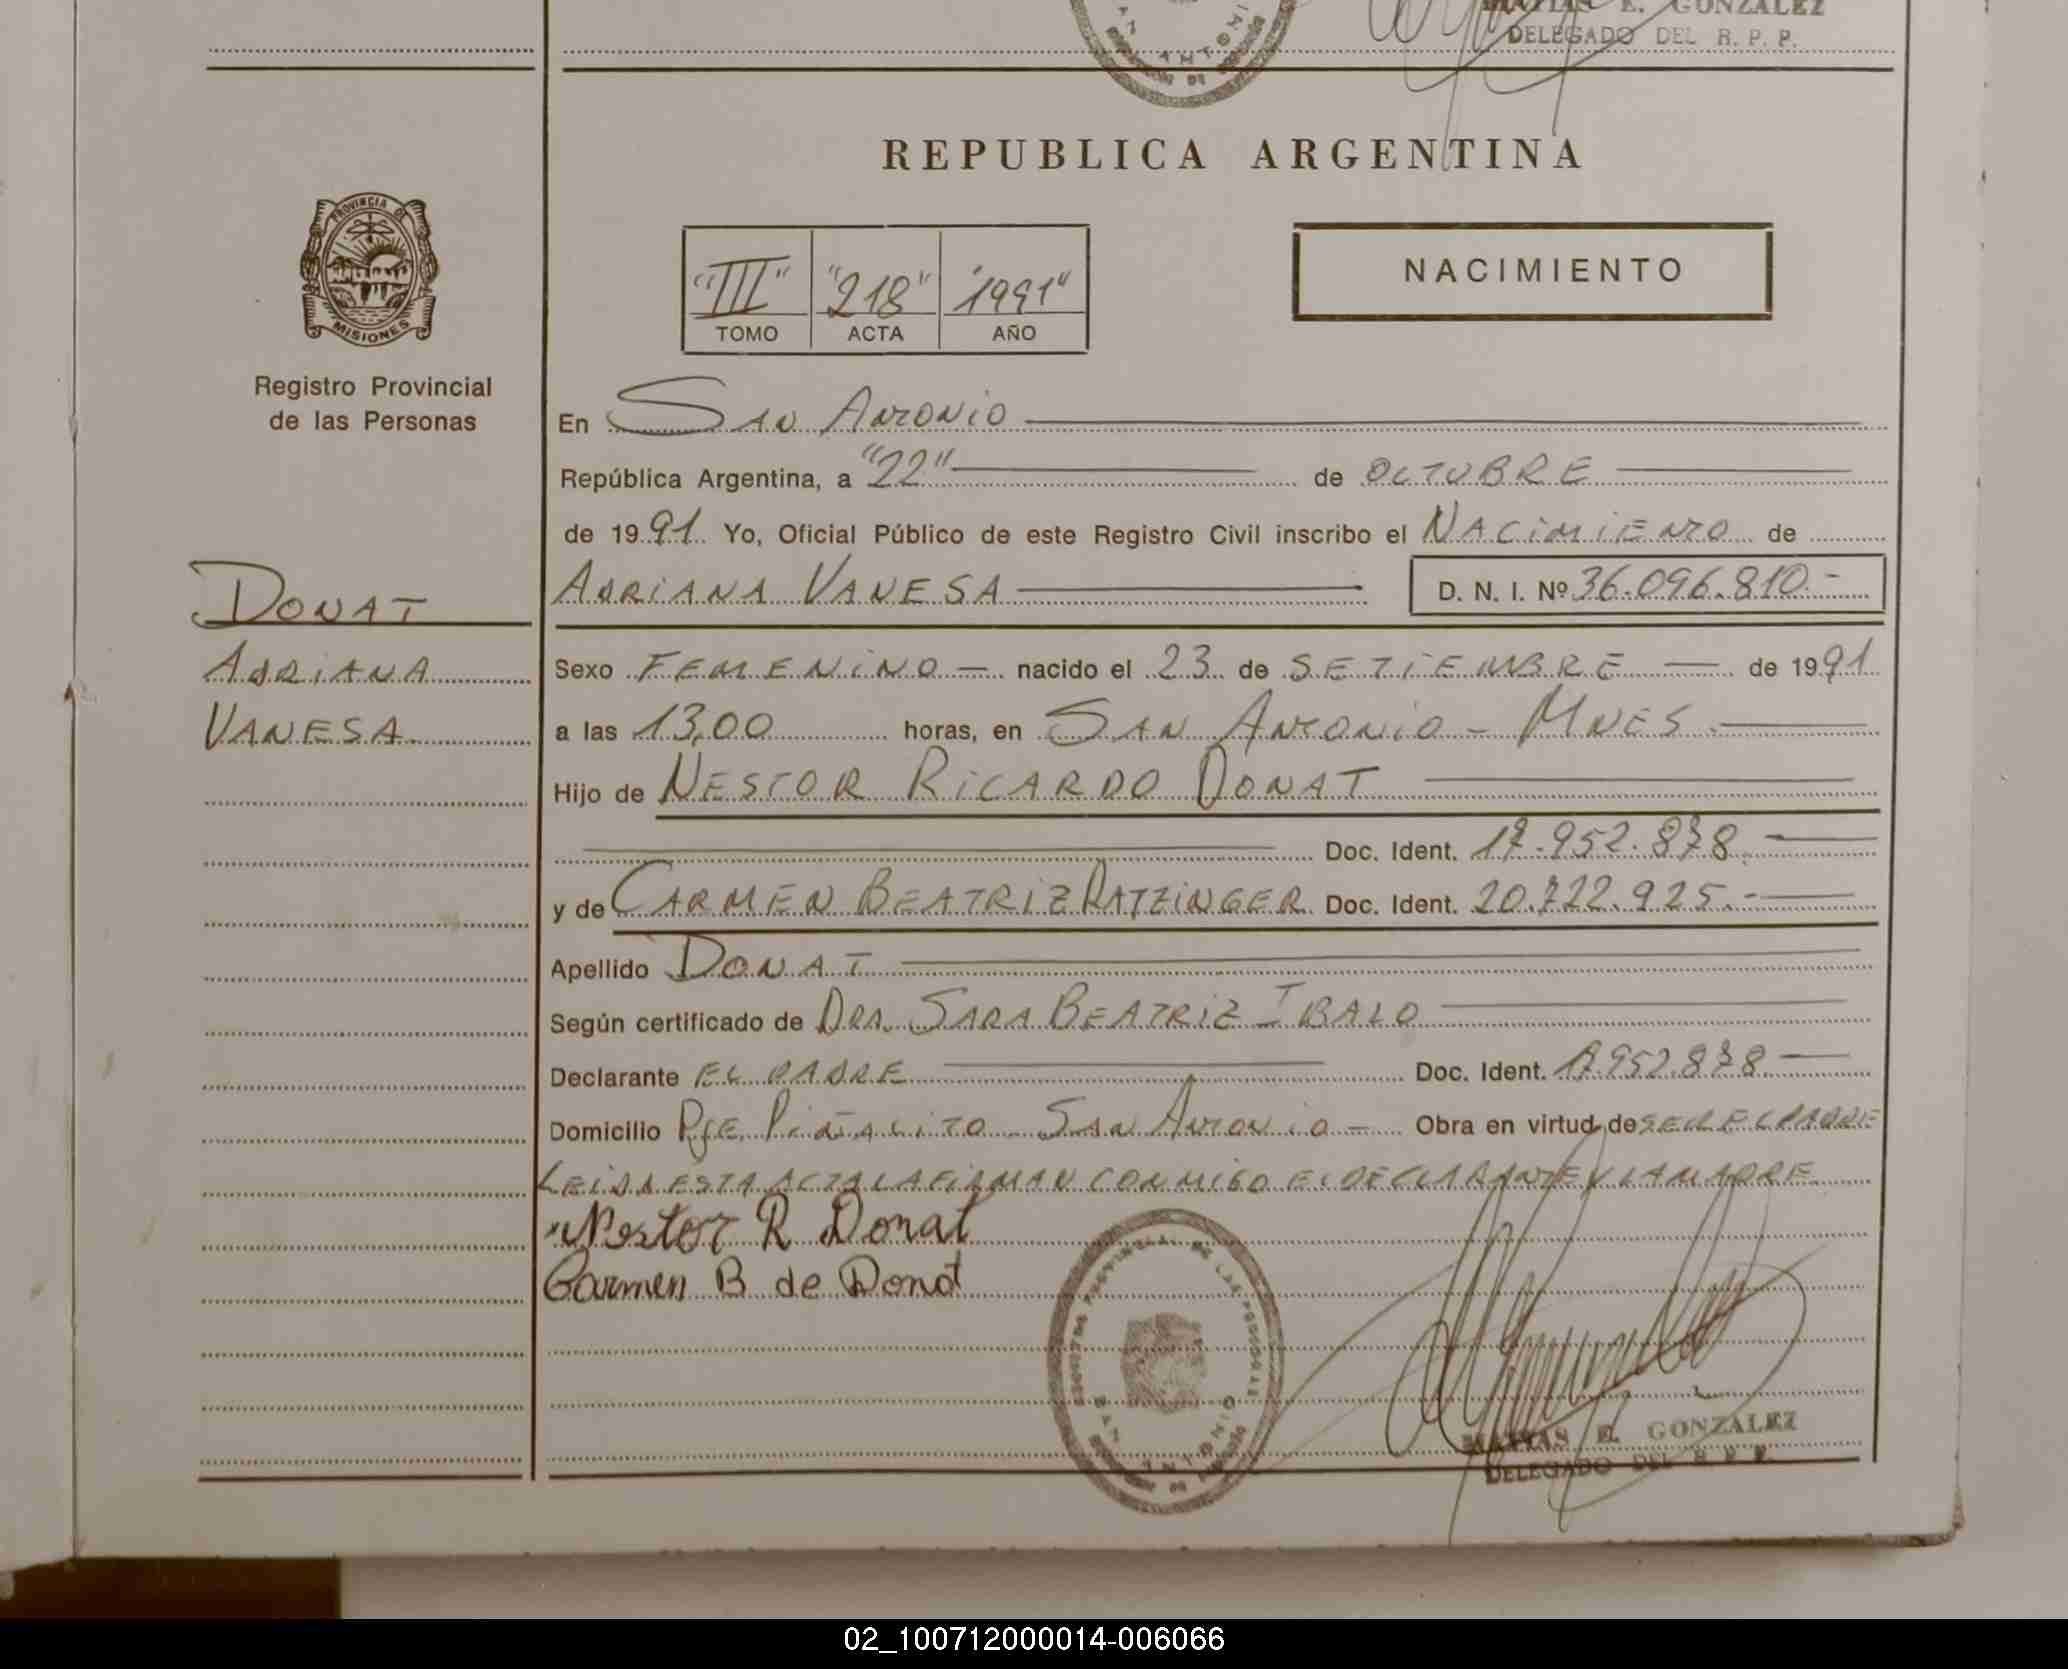 MATIAS E. GONZALEZ
DELEGADO DEL R. P. P.
REPUBLICA ARGENTINA
PROVINCIA DE
MISIONES
Registro Provincial
de las Personas
"III" "218" "1991"
TOMO ACTA AÑO
NACIMIENTO
En SAN ANTONIO
República Argentina, a "22" de OCTUBRE
de 1991 Yo, Oficial Público de este Registro Civil inscribo el NACIMIENTO de
DONAT
ADRIANA VANESA D. N. I. Nº 36.096.810.-
ADRIANA
Sexo FEMENINO — nacido el 23 de SETIEMBRE — de 1991
VANESA
a las 13,00 horas, en SAN ANTONIO - MNES.
Hijo de NESTOR RICARDO DONAT
Doc. Ident. 17.952.878.
y de CARMEN BEATRIZ RATZINGER Doc. Ident. 20.722.925.-
Apellido DONAT
Según certificado de DRA. SARA BEATRIZ IBALO
Declarante EL PADRE Doc. Ident. 17.952.878.
Domicilio PJE. PIÑALITO - SAN ANTONIO - Obra en virtud de SER EL PADRE
LEIDA ESTA ACTA LA FIRMAN CONMIGO EL DECLARANTE Y LA MADRE.
Nestor R Donat
Carmen B de Donat
REGISTRO PROVINCIAL DE LAS PERSONAS
SAN ANTONIO
MATIAS E. GONZALEZ
DELEGADO DEL R. P. P.
02_100712000014-006066